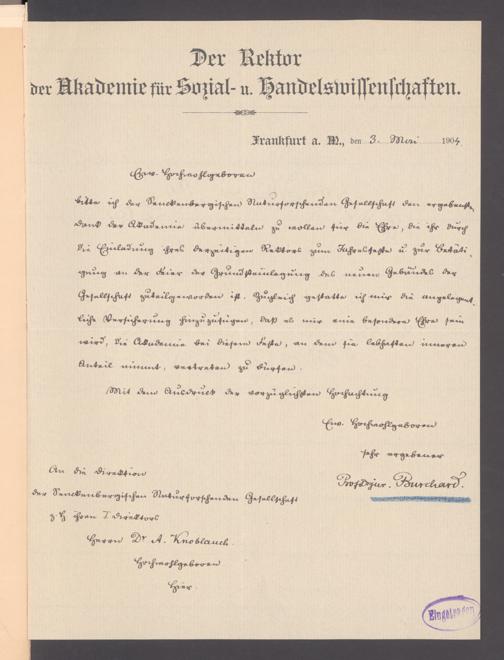 Der Rektor
der Akademie für Sozial- u. Handelswissenschaften.
Frankfurt a. M., den 3. Mai 1904
Euw. Hochwohlgeboren
bitte ich der Senckenbergischen Naturforschenden Gesellschaft den ergebensten
Dank der Akademie übermitteln zu wollen für die Ehre, die ihr durch
die Einladung ihres derzeitigen Rektors zum Jahresfeste u. zur Betäti-
gung an der Feier der Grundsteinlegung des neuen Gebäudes der
Gesellschaft zuteilgeworden ist. Zugleich gestatte ich mir die angelegent-
liche Versicherung hinzuzufügen, daß es mir eine besondere Ehre sein
wird, die Akademie bei diesem Feste, an dem sie lebhaften inneren
Anteil nimmt, vertreten zu dürfen.
Mit dem Ausdruck der vorzüglichsten Hochachtung
Euw. Hochwohlgeboren
sehr ergebener
Prof. Dr. jur. Burchard.
An die Direktion
der Senckenbergischen Naturforschenden Gesellschaft
z. H. ihres I. Direktors
Herrn Dr A. Knoblauch.
Hochwohlgeboren
Hier.
Eingetragen